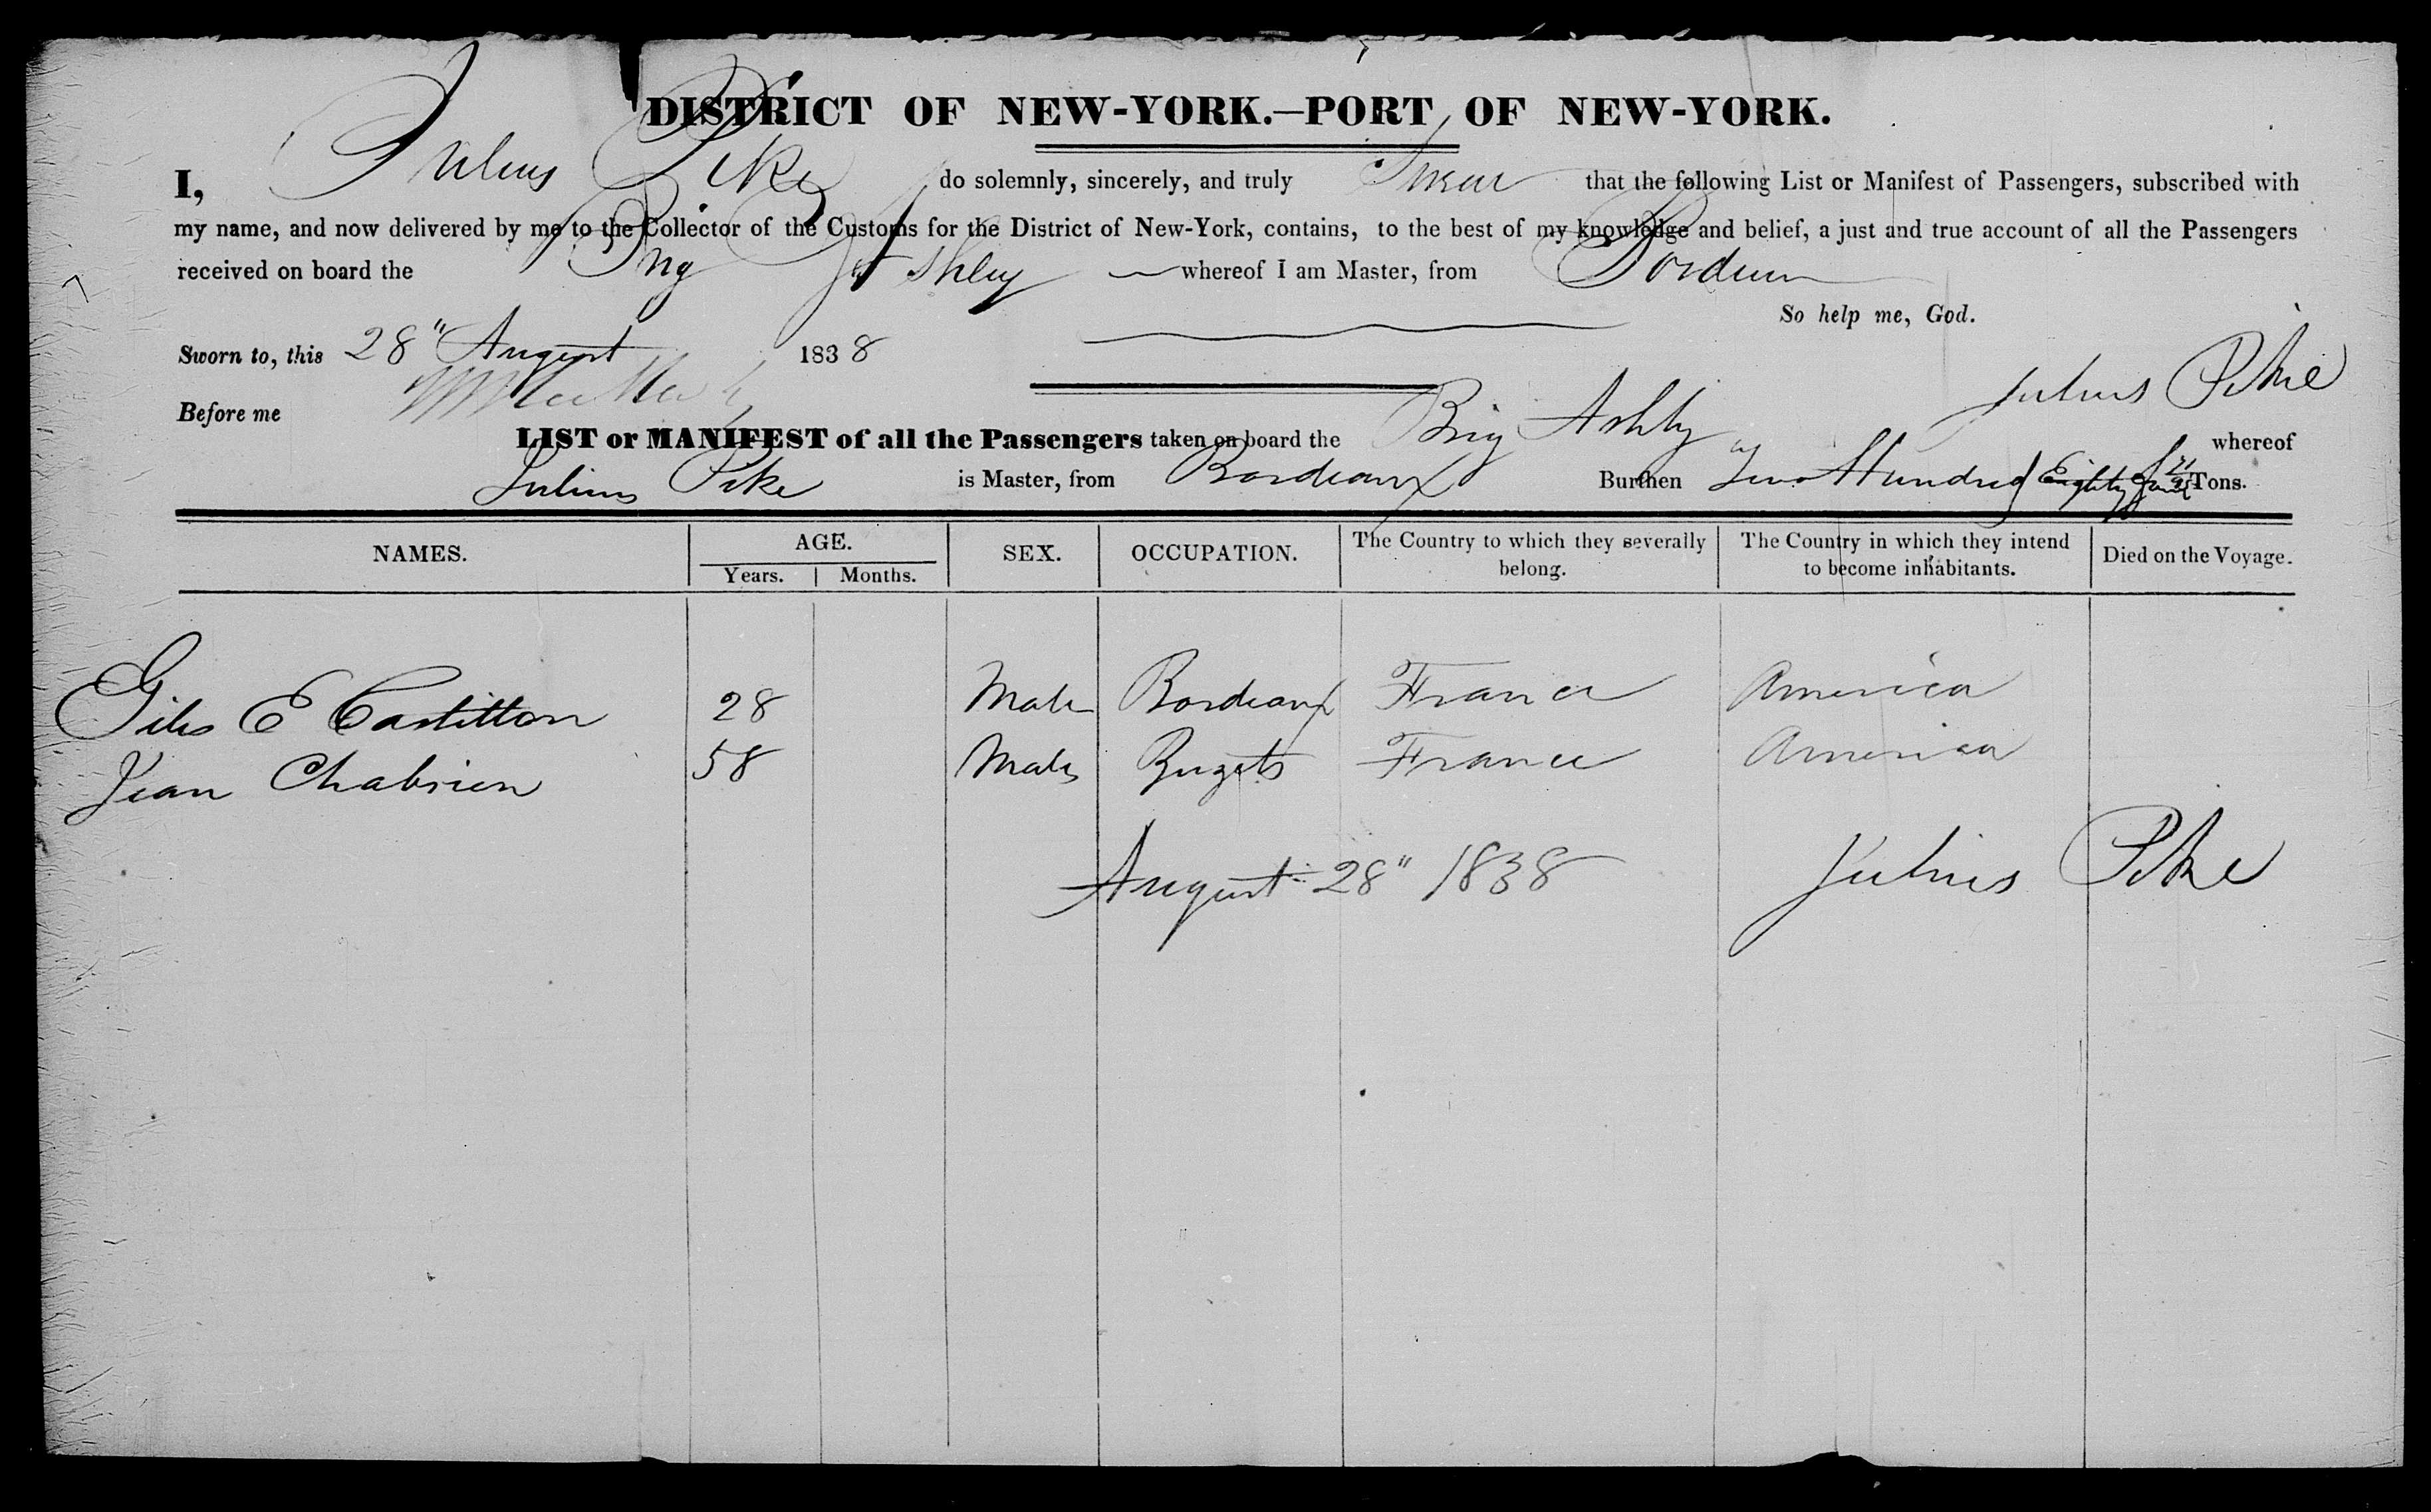 DISTRICT OF NEW-YORK.—PORT OF NEW-YORK.
I, Julius Pike do solemnly, sincerely, and truly Swear that the following List or Manifest of Passengers, subscribed with
my name, and now delivered by me to the Collector of the Customs for the District of New-York, contains, to the best of my knowledge and belief, a just and true account of all the Passengers
received on board the Brig Ashley whereof I am Master, from
So help me, God.
Sworn to, this 28" August 1838
Julius Pike
Before me
LIST or MANIFEST of all the Passengers taken on board the Brig Ashly whereof
Julius Pike is Master, from Bordeaux Burthen Two Hundred Eighty Tons.
NAMES. AGE. SEX. OCCUPATION. The Country to which they severally belong. The Country in which they intend to become inhabitants. Died on the Voyage.
Years. Months.
Giles E 28 Male Bordeaux France America
Jean Chabrien 58 Male France America
August 28" 1838 Julius Pike